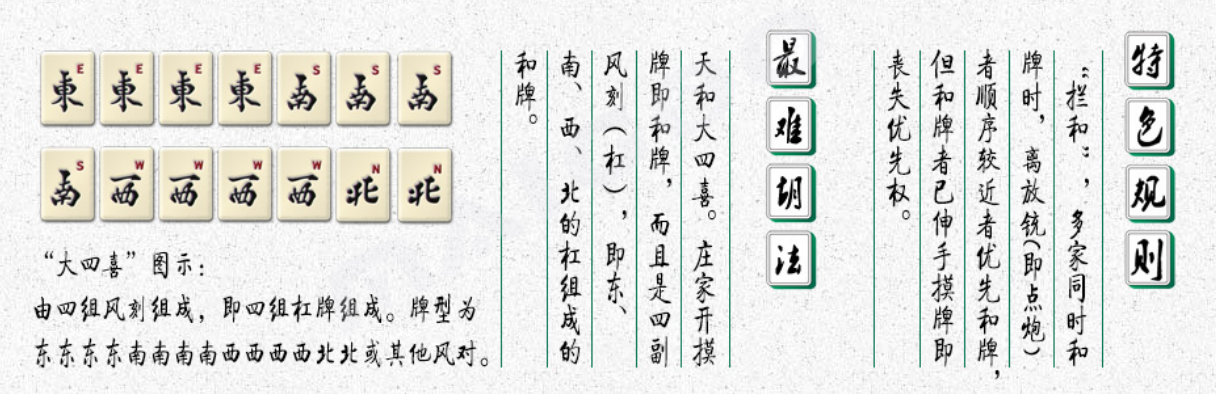 特色规则
“拦和”，多家同时和
牌时，离放铳(即点炮)
者顺序较近者优先和牌，
但和牌者已伸手摸牌即
丧失优先权。
最难胡法
天和大四喜。庄家开摸
牌即和牌，而且是四副
风刻（杠），即东、
南、西、北的杠组成的
和牌。
東E 東E 東E 東E 南S 南S 南S
南S 西W 西W 西W 西W 北N 北N
“大四喜”图示：
由四组风刻组成，即四组杠牌组成。牌型为
东东东东南南南南西西西西北北或其他风对。